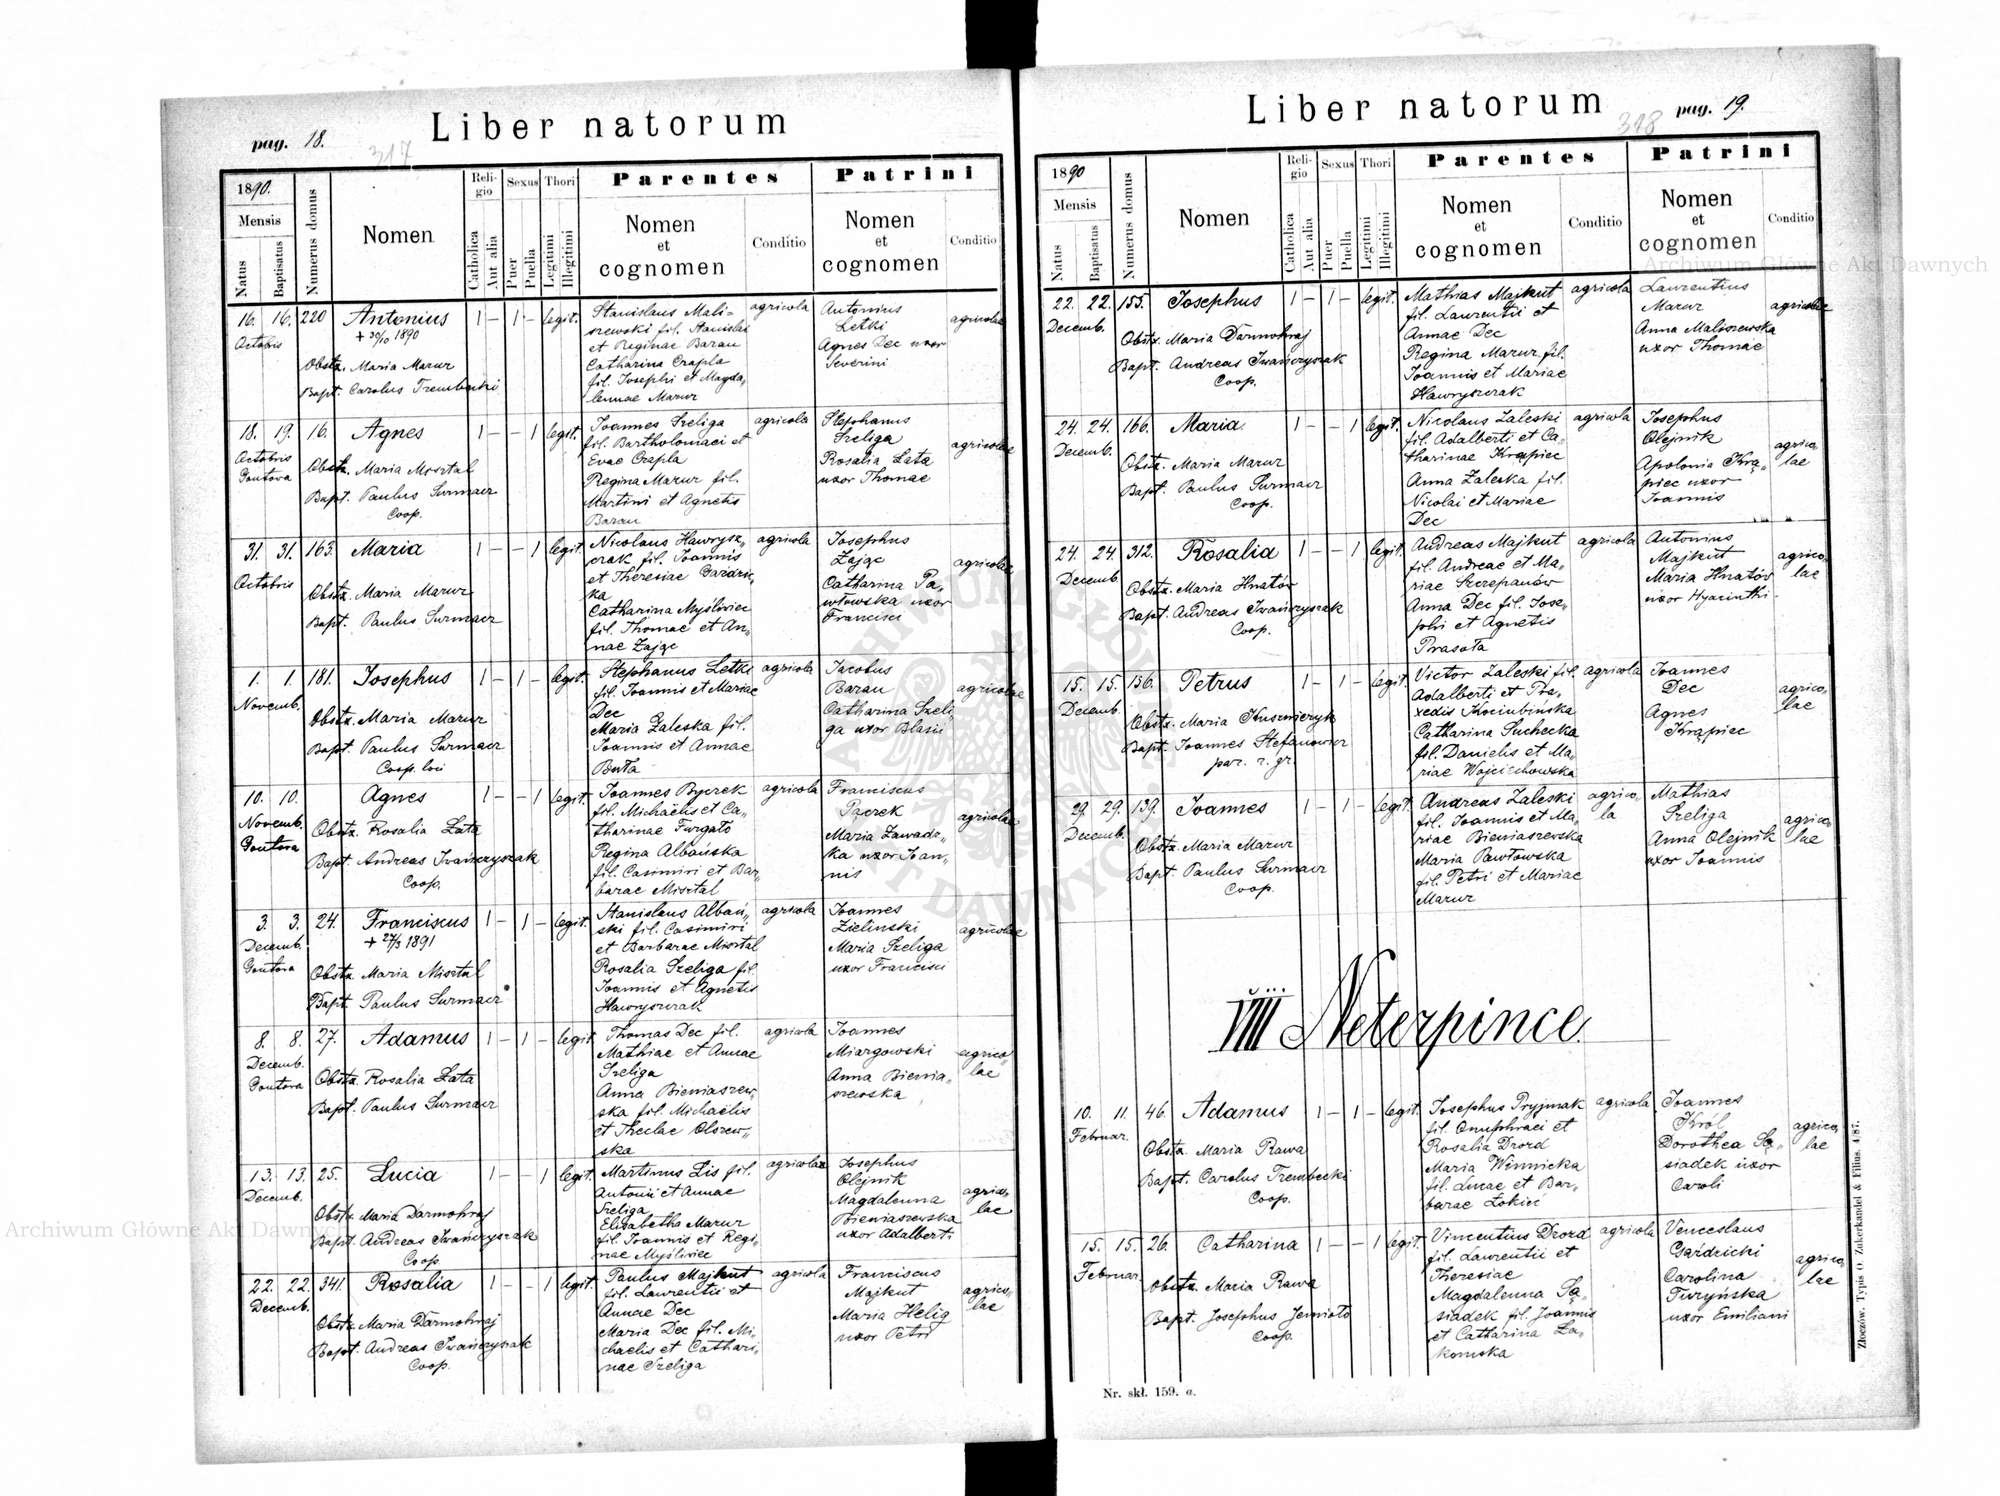 Liber natorum
pag. 18.
317
1890.
Mensis
Natus
Baptisatus
Numerus domus
Nomen
Religio
Catholica
Aut alia
Sexus
Puer
Puella
Thori
Legitimi
Illegitimi
Parentes
Nomen
et
cognomen
Conditio
Patrini
Nomen
et
cognomen
Conditio
16. 16. 220 Antonius 1 – 1 – legit.
Octobris
+ 30/10 1890
Obstx. Maria Mazur
Bapt. Carolus Trembecki
Stanislaus Mali=
szewski fil. Stanislai
et Reginae Baran
Catharina Czapla
fil. Josephi et Magda,
lennae Mazur
agricola
Antonius
Letki
Agnes Dec uxor
Severini
agricolae
18. 19. 16. Agnes 1 – – 1 legit.
Octobris
Gontova
Obstx. Maria Misztal
Bapt. Paulus Surmacz
Coop.
Joannes Szeliga
fil. Bartholomaei et
Evae Czapla
Regina Mazur fil.
Martini et Agnetis
Baran
agricola
Stephanus
Szeliga
Rosalia Łata
uxor Thomae
agricolae
31. 31. 163. Maria 1 – – 1 legit.
Octobris
Obstx. Maria Mazur
Bapt. Paulus Surmacz
Nicolaus Hawrysz„
czak fil. Joannis
et Theresiae Gwizdic,
ka
Catharina Myśliwiec
fil. Thomae et An„
nae Zając
agricola
Josephus
Zając
Catharina Pa„
włowska uxor
Francisci
agricolae
1. 1. 181. Josephus 1 – 1 – legit.
Novemb.
Obstx. Maria Mazur
Bapt. Paulus Surmacz
Coop. loci
Stephanus Letki
fil. Joannis et Mariae
Dec
Maria Zaleska fil.
Joannis et Annae
Buta
agricola
Jacobus
Baran
Catharina Szeli„
ga uxor Blasii
agricolae
10. 10. Agnes 1 – – 1 legit.
Novemb.
Gontova
Obstx. Rosalia Łata
Bapt. Andreas Iwańczyszak
Coop.
Joannes Byczek
fil. Michaëlis et Ca„
tharinae Furgało
Regina Albańska
fil. Casimiri et Bar„
barae Misztal
agricola
Franciscus
Pacrek
Maria Zawadz„
ka uxor Joan„
nis
agricolae
3. 3. 24. Franciscus 1 – 1 – legit.
Decemb.
Gontova
+ 27/3 1891
Obstx. Maria Misztal
Bapt. Paulus Surmacz
Stanislaus Albań„
ski fil. Casimiri
et Barbarae Misztal
Rosalia Szeliga fil.
Joannis et Agnetis
Hawryszczak
agricola
Joannes
Zieliński
Maria Szeliga
uxor Francisci
agricolae
8. 8. 27. Adamus 1 – 1 – legit.
Decemb.
Gontova
Obstx. Rosalia Łata
Bapt. Paulus Surmacz
Thomas Dec fil.
Mathiae et Annae
Szeliga
Anna Bieniaszew„
ska fil. Michaëlis
et Theclae Olszew„
ska
agricola
Joannes
Miargowski
Anna Bienia„
szewska
agrico„
lae
13. 13. 25. Lucia 1 – – 1 legit.
Decemb.
Obstx. Maria Darmohraj
Bapt. Andreas Iwańczyszak
Coop.
Martinus Lis fil.
Antonii et Annae
Szeliga
Elisabetha Mazur
fil. Joannis et Regi„
nae Myśliwiec
agricola
Josephus
Olejnik
Magdalenna
Bieniaszewska
uxor Adalberti
agrico„
lae
22. 22. 341. Rosalia 1 – – 1 legit.
Decemb.
Obstx. Maria Darmohraj
Bapt. Andreas Iwańczyszak
Coop.
Paulus Majkut
fil. Laurentii et
Annae Dec
Maria Dec fil. Mi„
chaelis et Cathari„
nae Szeliga
agricola
Franciscus
Majkut
Maria Helig
uxor Petri
agrico„
lae
Liber natorum
318
pag. 19.
1890
Mensis
Natus
Baptisatus
Numerus domus
Nomen
Religio
Catholica
Aut alia
Sexus
Puer
Puella
Thori
Legitimi
Illegitimi
Parentes
Nomen
et
cognomen
Conditio
Patrini
Nomen
et
cognomen
Conditio
22. 22. 155. Josephus 1 – 1 – legit.
Decemb.
Obstx. Maria Darmohraj
Bapt. Andreas Iwańczyszak
Coop.
Mathias Majkut
fil. Laurentii et
Annae Dec
Regina Mazur fil.
Joannis et Mariae
Hawryszczak
agricola
Laurentius
Mazur
Anna Maliszewska
uxor Thomae
agricolae
24. 24. 166. Maria 1 – – 1 legit.
Decemb.
Obstx. Maria Mazur
Bapt. Paulus Surmacz
Coop.
Nicolaus Zaleski
fil. Adalberti et Ca„
tharinae Krąpiec
Anna Zaleska fil.
Nicolai et Mariae
Dec
agricola
Josephus
Olejnik
Apolonia Krą„
piec uxor
Joannis
agrico„
lae
24. 24. 312. Rosalia 1 – – 1 legit.
Decemb.
Obstx. Maria Hnatów
Bapt. Andreas Iwańczyszak
Coop.
Andreas Majkut
fil. Andreae et Ma„
riae Szczepanów
Anna Dec fil. Jose„
phi et Agnetis
Prasoła
agricola
Antonius
Majkut
Maria Hnatów
uxor Hyacinthi
agrico„
lae
15. 15. 136. Petrus 1 – 1 – legit.
Decemb.
Obstx. Maria Kuszmiczyk
Bapt. Joannes Stefanowicz
par. r. gr.
Victor Zaleski fil.
Adalberti et Pra„
xedis Kociubińska
Catharina Suchecka
fil. Danielis et Ma„
riae Wojciechowska
agricola
Joannes
Dec
Agnes
Krąpiec
agrico„
lae
29. 29. 139. Joannes 1 – 1 – legit.
Decemb.
Obstx. Maria Mazur
Bapt. Paulus Surmacz
Coop.
Andreas Zaleski
fil. Joannis et Ma„
riae Bieniaszewska
Maria Pawłowska
fil. Petri et Mariae
Mazur
agrico„
la
Mathias
Szeliga
Anna Olejnik
uxor Joannis
agrico„
lae
VIIII Neterpince.
10. 11. 46. Adamus 1 – 1 – legit.
Februar.
Obstx. Maria Rawa
Bapt. Carolus Trembecki
Coop.
Josephus Pryjmak
fil. Onuphraei et
Rosalia Drozd
Maria Winnicka
fil. Lucae et Bar„
barae Łokieć
agricola
Joannes
Król
Dorothea Są„
siadek uxor
Caroli
agrico„
lae
15. 15. 26. Catharina 1 – – 1 legit.
Februar.
Obstx. Maria Rawa
Bapt. Josephus Jemioło
Coop.
Vincentius Drozd
fil. Laurentii et
Theresiae
Magdalenna Są„
siadek fil. Joannis
et Catharina Ła„
komska
agricola
Venceslaus
Gwizdicki
Carolina
Turyńska
uxor Emiliani
agrico„
lae
Nr. skł. 159. a.
Złoczów. Typis O. Zukerkandel & Filius. 4/87.
Archiwum Główne Akt Dawnych
Archiwum Główne Akt Dawnych
ARCHIWUM GŁÓWNE AKT DAWNYCH